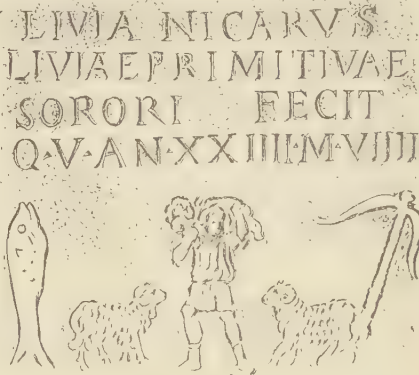 LIVIA NICARVS
LIVIAE PRIMITIVAE
SORORI FECIT
Q·V·AN·XXIIII·M·VIIII